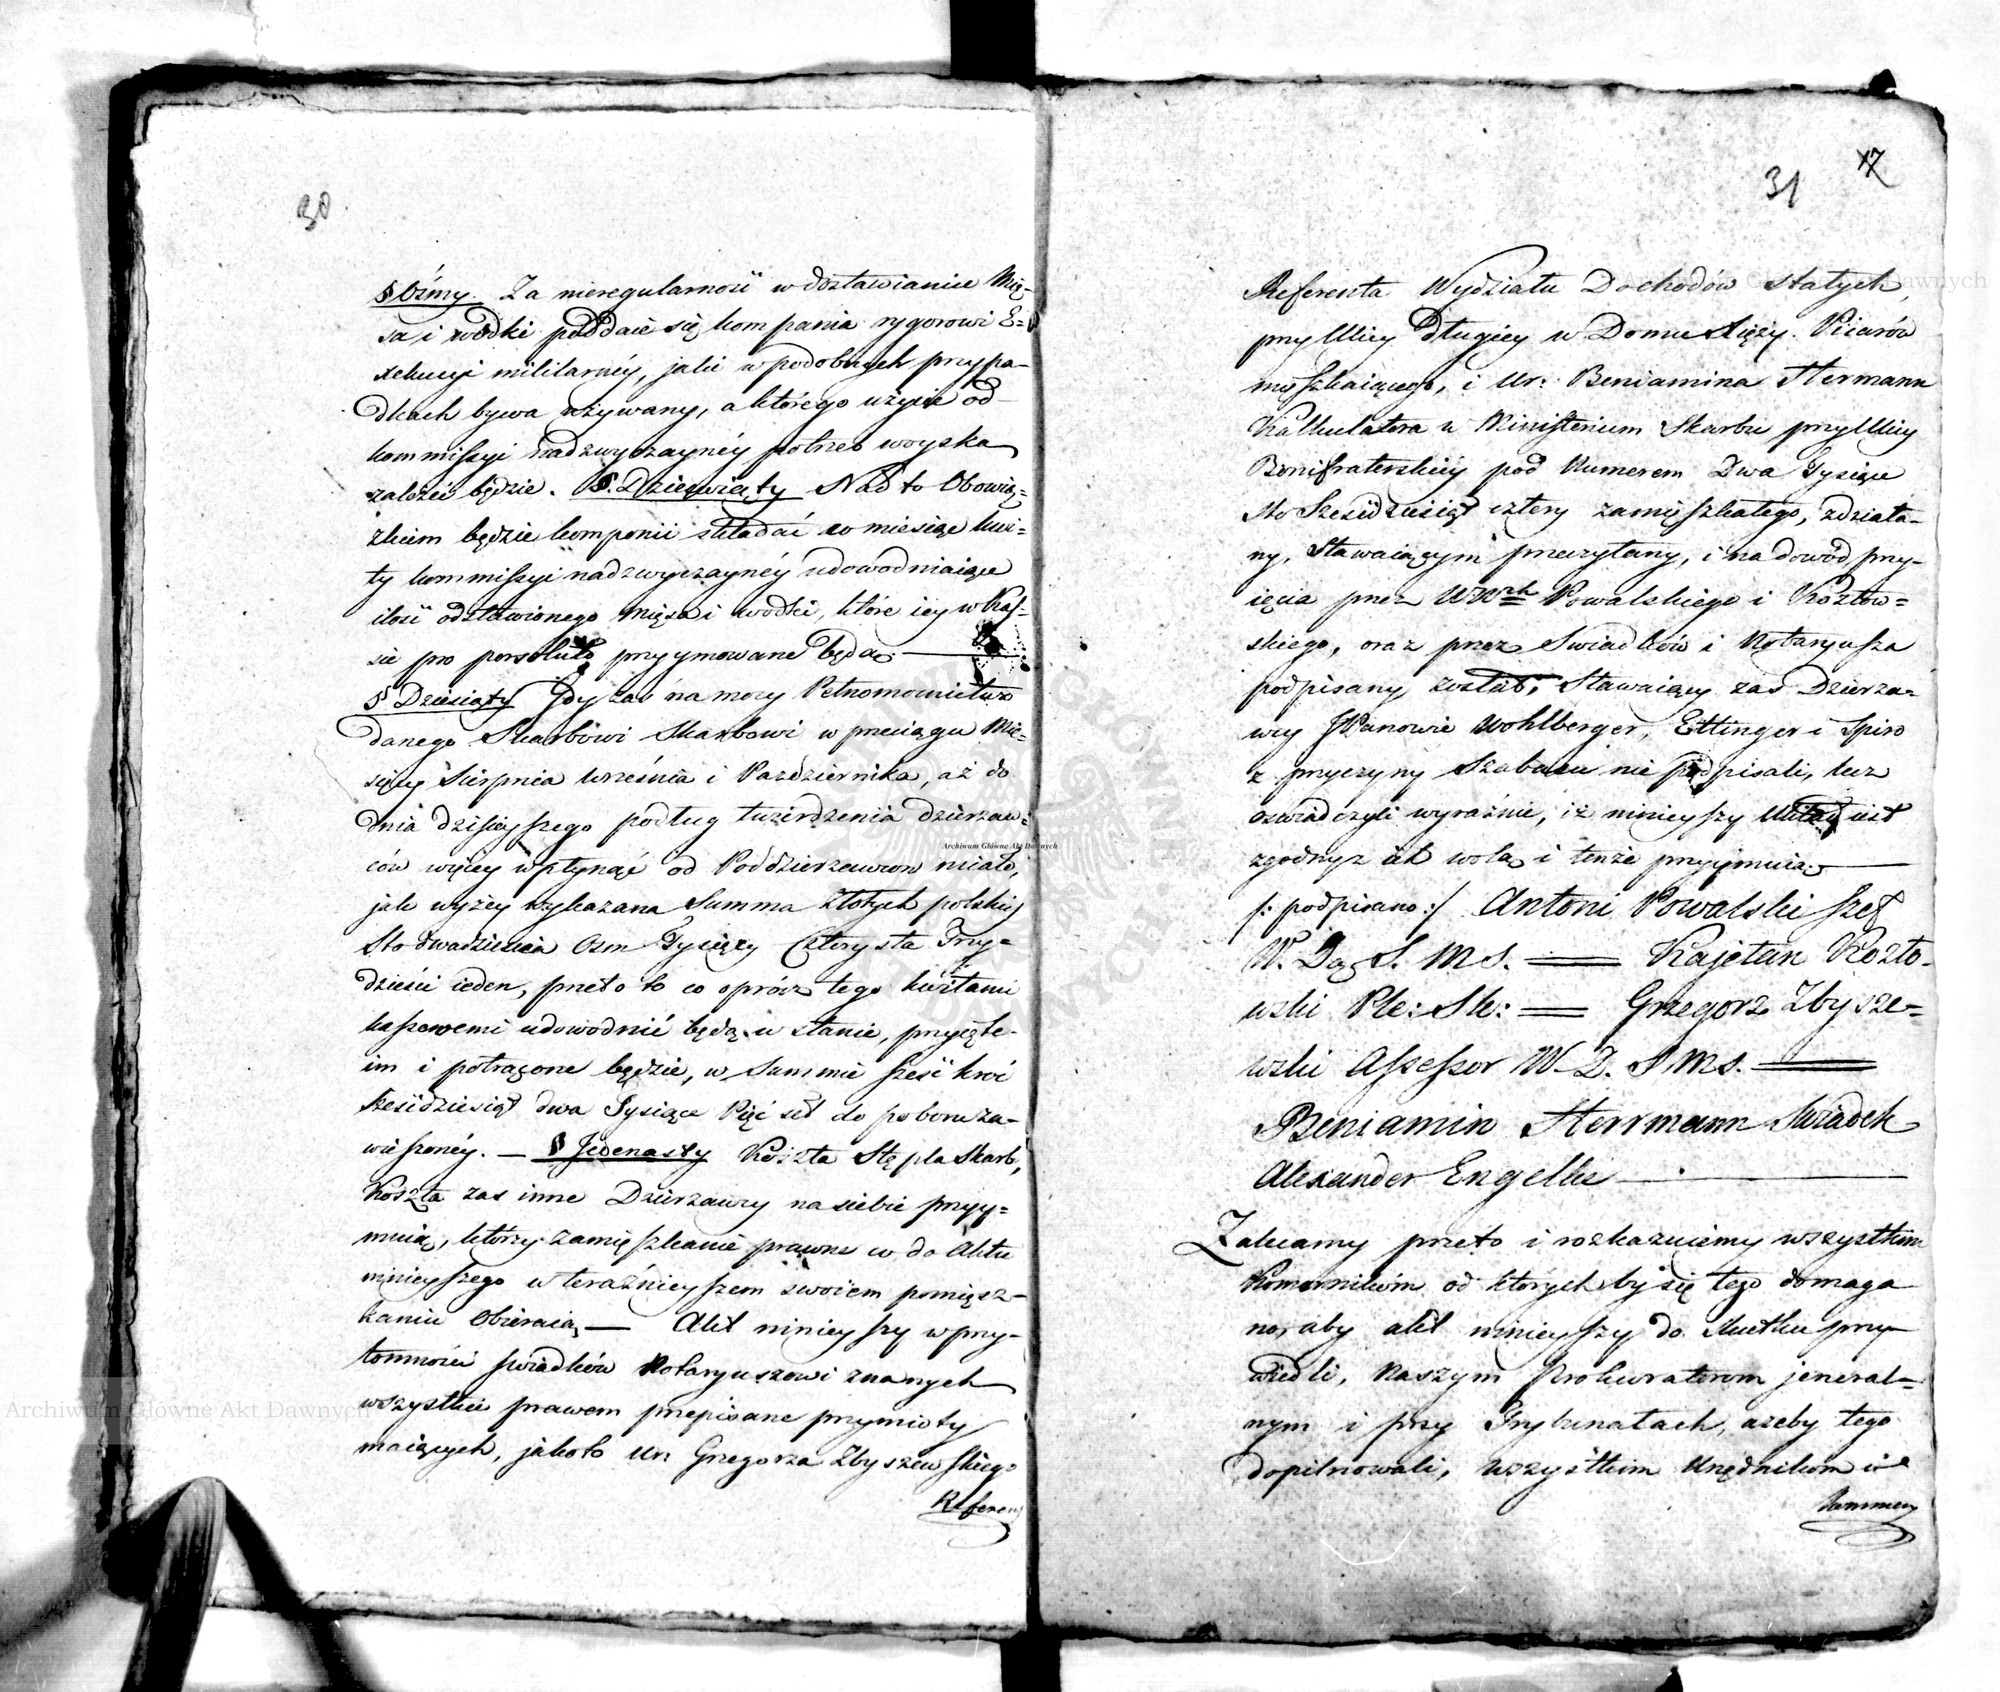 30
§ Ósmy. Za nieregularność w dostawianiu Mię-
sa i wódki poddaie się kompania rygorowi E=
xekucyi militarnéy, jaki w podobnych przypa-
dkach bywa używany, a którego użycie od
kommissyi nadzwyczaynéy potrzeb woyska
zależeć będzie. §. Dziewiąty Nad to Obowią=
zkiem będzie kompanii składać co miesiąc kwi=
ty kommissyi nadzwyczaynéy udowodniaiące
ilość odstawionego mięsa i wodki, które iey w Kas-
sie pro persoluto przyymowane będą.
§ Dziesiąty Gdy zaś na mocy Pełnomocnictwo
danego Skarbowi Skarbowi w przeciągu Mie=
sięcy Sierpnia Września i Października, aż do
dnia dzisieyszego podług twierdzenia dzierzaw=
ców więcey wpłynąć od Poddzierzawcow miało,
jak wyżey wykazana Summa Złotych polskich
Sto dwadzieścia Osm Tysięcy Czterysta Trzy=
dzieści ieden, przeto to co oprócz tego kwitami
kassowemi udowodnić będą w stanie, przyięte
im i potrącone będzie, w Summie sześć kroć
sześćdziesiąt dwa Tysiące Pięć set do poboru za-
wieszonéy. — § Jedenasty Koszta Stępla Skarb,
Koszta zas inne Dzierzawcy na siebie przyy=
muią, którzy zamięszkanie prawne co do Aktu
ninieyszego w teraźnieyszem swoiem pomięsz-
kaniu Obieraią — Akt ninieyszy w przy-
tomności świadków Notaryuszowi znanych
wszystkie prawem przepisane przymioty
maiących, jakoto Ur: Grzegorza Zbyszewskiego
Referen
31 17
Referenta Wydziału Dochodów stałych,
przy Ulicy Długiey w Domu Xięży Piiarów
mięszkaiącego, i Ur: Beniamina Hermann
Kalkulatora w Ministerium Skarbu przy Ulicy
Bonifraterskiéy pod Numerem Dwa Tysiące
Sto Sześćdziesiąt cztery zamięszkałego, zdziała-
ny, Stawaiącym przeczytany, i na dowód przy-
ięcia przez WWch Powalskiego i Kozłow=
skiego, oraz przez Swiadków i Notaryusza
podpisany został, Stawaiący zas Dzierza=
wcy JPanowie Wohlberger, Ettinger i Spiro
z przyczyny Szabasu nie podpisali, lecz
oswiadczyli wyraźnie, iż ninieyszy Układ iest
zgodny z ich wolą i tenże przyymuią.
/: podpisano :/ Antoni Powalski Szef
W. D. S. M S. Kajetan Kozło-
wski Ple: Sk: Grzegorz Zbysze=
wski Assessor W. D. S. M S.
Beniamin Herrmann Swiadek
Alexander Engelke
Zalecamy przeto i rozkazuiemy wszystkim
Komornikom od których by się tego domaga
no, aby akt ninieyszy do skutku przy-
wiedli, Naszym Prokuratorom jeneral=
nym i przy Trybunałach, ażeby tego
dopilnowali, wszystkim Urzędnikom i
Kommen
Archiwum Główne Akt Dawnych